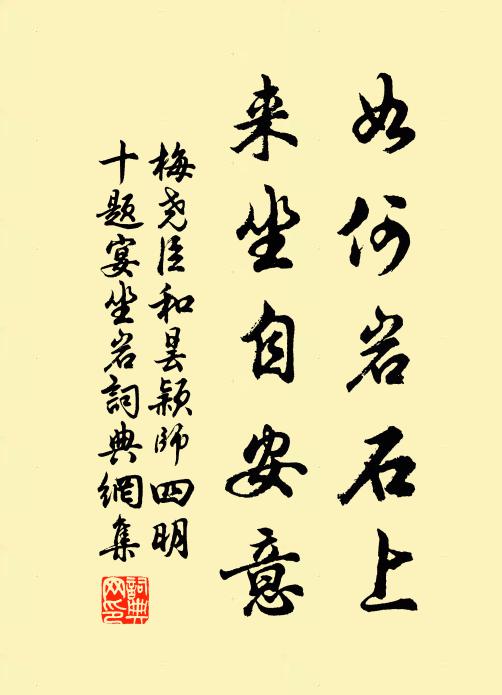 如何岩石上
来坐自安意
梅尧臣和昙颖师四明
十题宴坐岩词典網集
詞典网印